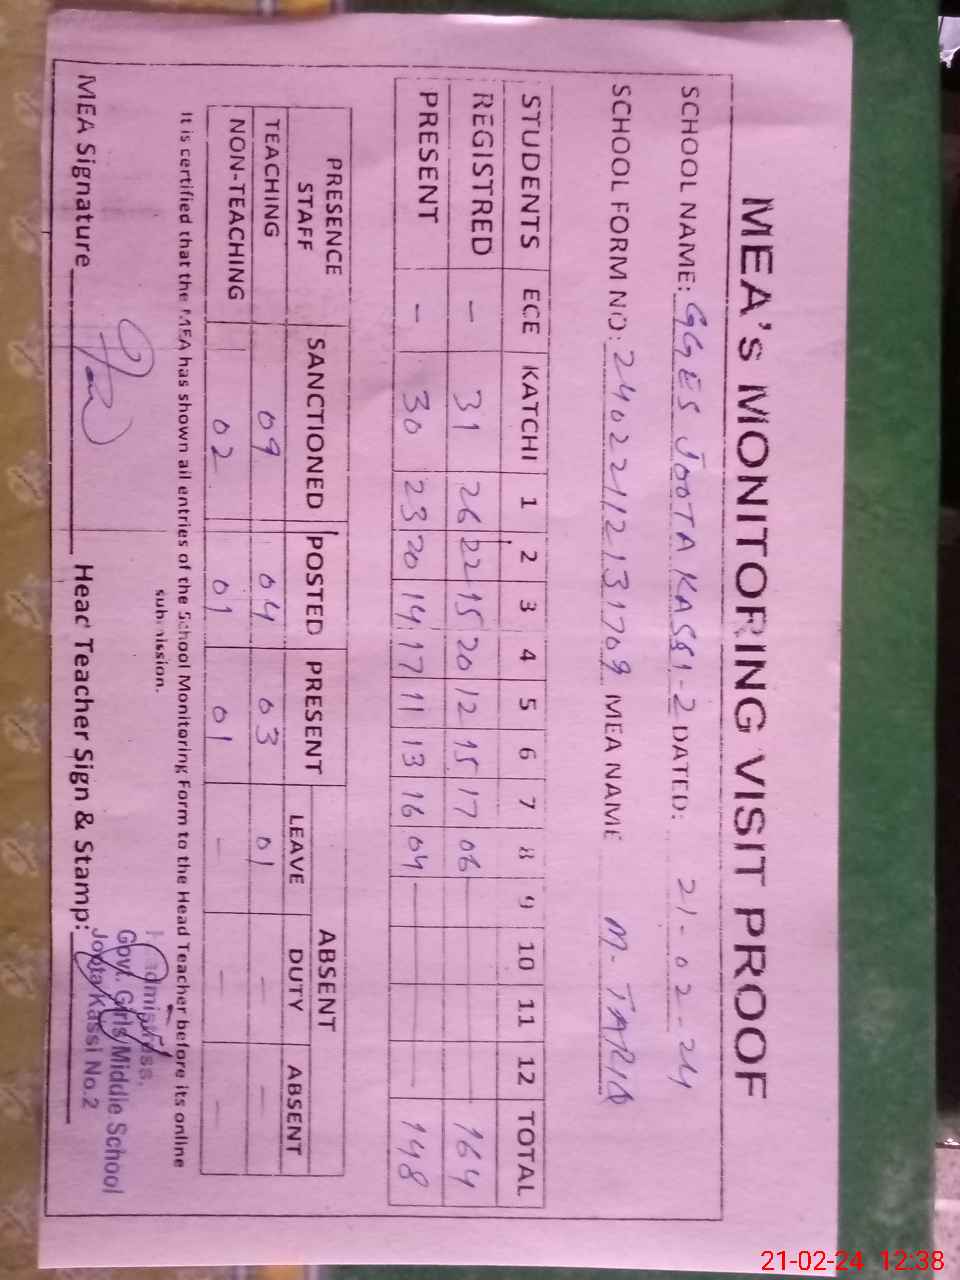 MEA's MONITORING VISIT PROOF
SCHOOL NAME: GGES JOOTA KASSI-2 DATED: 21-02-24
SCHOOL FORM NO: 24022112131709 MEA NAME M-TARIQ
STUDENTS ECE KATCHI 1 2 3 4 5 6 7 8 9 10 11 12 TOTAL
REGISTRED - 31 26 22 15 20 12 15 17 06 164
PRESENT - 30 23 20 14 17 11 13 16 04 148
PRESENCE STAFF SANCTIONED POSTED PRESENT ABSENT
LEAVE DUTY ABSENT
TEACHING 09 04 03 01 - -
NON-TEACHING 02 01 01 - - -
It is certified that the MEA has shown all entries of the School Monitoring Form to the Head Teacher before its online
submission.
MEA Signature Head Teacher Sign & Stamp:
Headmistress,
Govt. Girls Middle School
Joota Kassi No.2
21-02-24 12:38